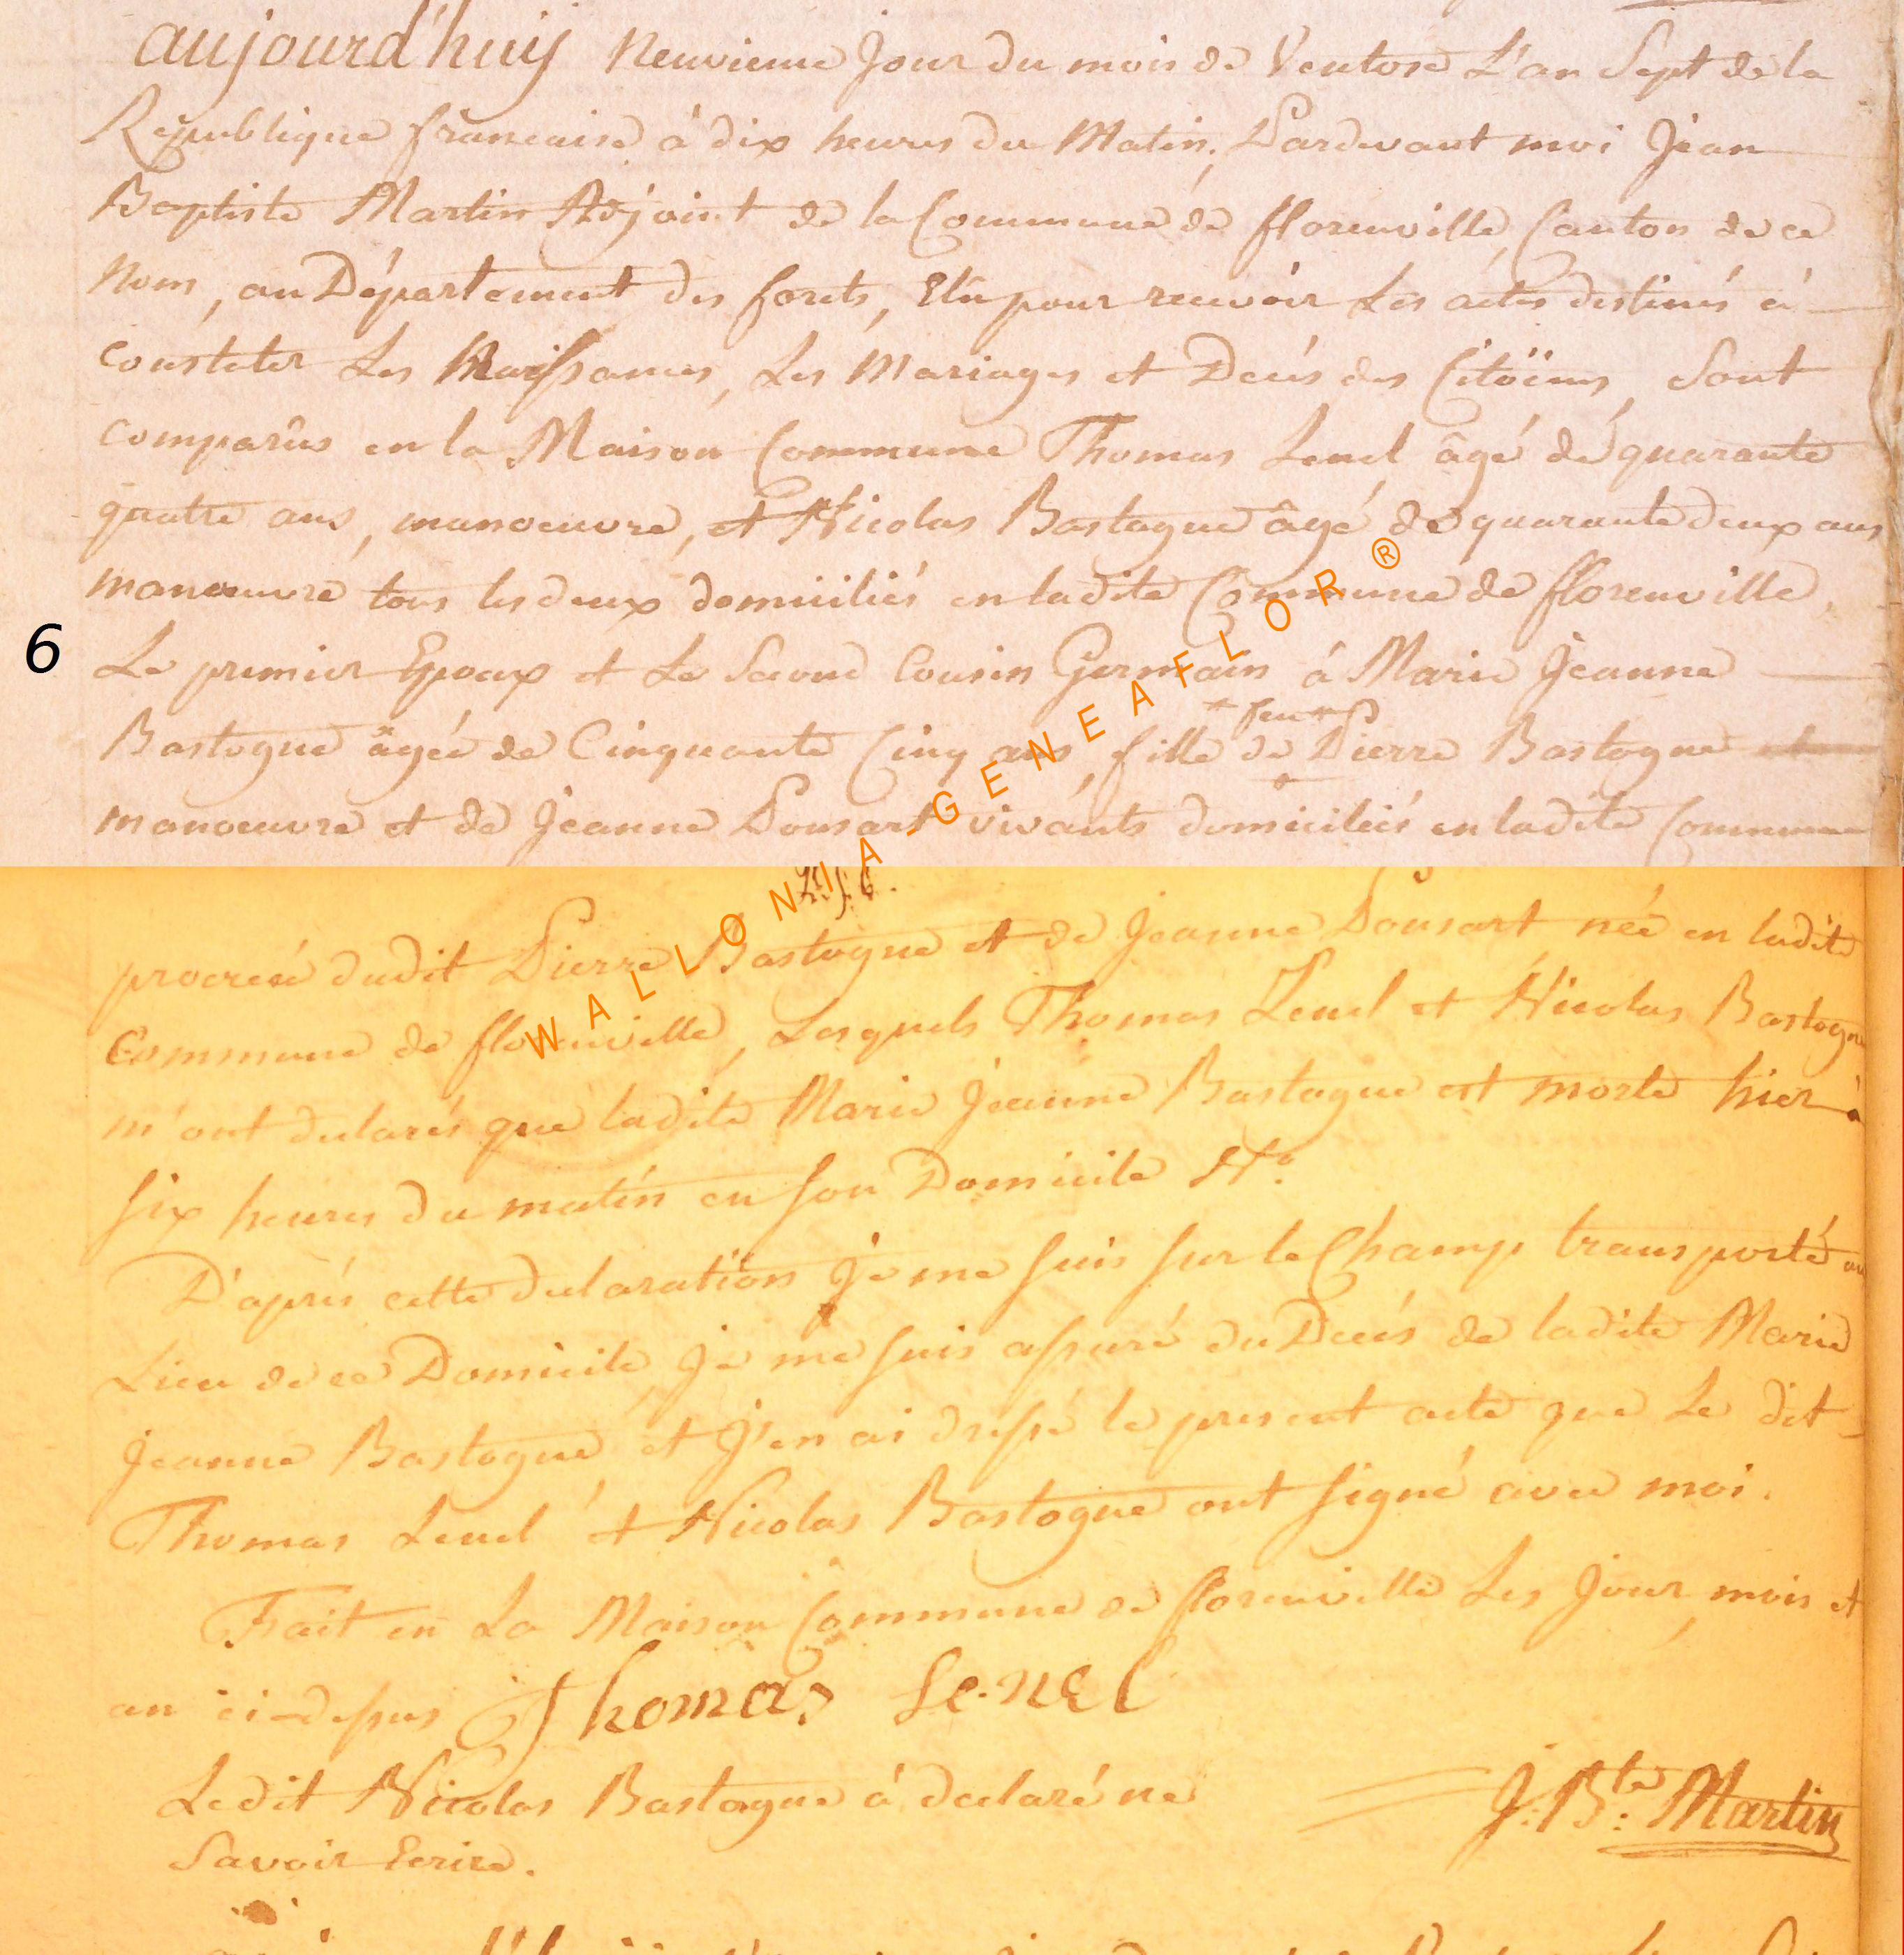 aujourd'huy Neuvieme Jour du mois de Ventose L'an Sept de la
Republique francaise à dix heures du Matin, Pardevant moi Jean
Baptiste Martin Adjoint de la Commune de florenville, Canton de ce
Nom, au Département des forets, Elû pour recevoir Les actes destinés à
constater Les Naissances, Les Mariages et Decés des Citoïens, Sont
comparûs en la Maison Commune Thomas Lenel âgé de quarante
quatre ans, manoeuvre, et Nicolas Bastogne âgé de quarante deux ans
manoeuvre tous les deux domiciliés en ladite Commune de florenville,
6
Le premier Epoux et Le Second Cousin Germain à Marie Jeanne
Bastogne âgée de Cinquante Cinq ans, fille de Pierre Bastogne
manoeuvre et de Jeanne Ponsart vivants domiciliés en ladite Commune
procréé dudit Pierre Bastogne et de Jeanne Ponsart née en ladite
Commune de florenville, Lesquels Thomas Lenel et Nicolas Bastogne
m'ont declarés que ladite Marie Jeanne Bastogne est morte hier à
six heures du matin en son Domicile
D'aprés cette declaration Je me suis sur le Champ transporté au
Lieu de ce Domicile, Je me suis assuré du Decés de ladite Marie
Jeanne Bastogne, et J'en ai dressé le present acte que Le dit
Thomas Lenel et Nicolas Bastogne ont signé avec moi.
Fait en La Maison Commune de florenville Les Jour, mois et
an ci-dessus Thomas Lenel
Ledit Nicolas Bastogne à declaré ne
Savoir Ecrire.
J: Bte: Martin
WALLONIA GENEAFLOR ®